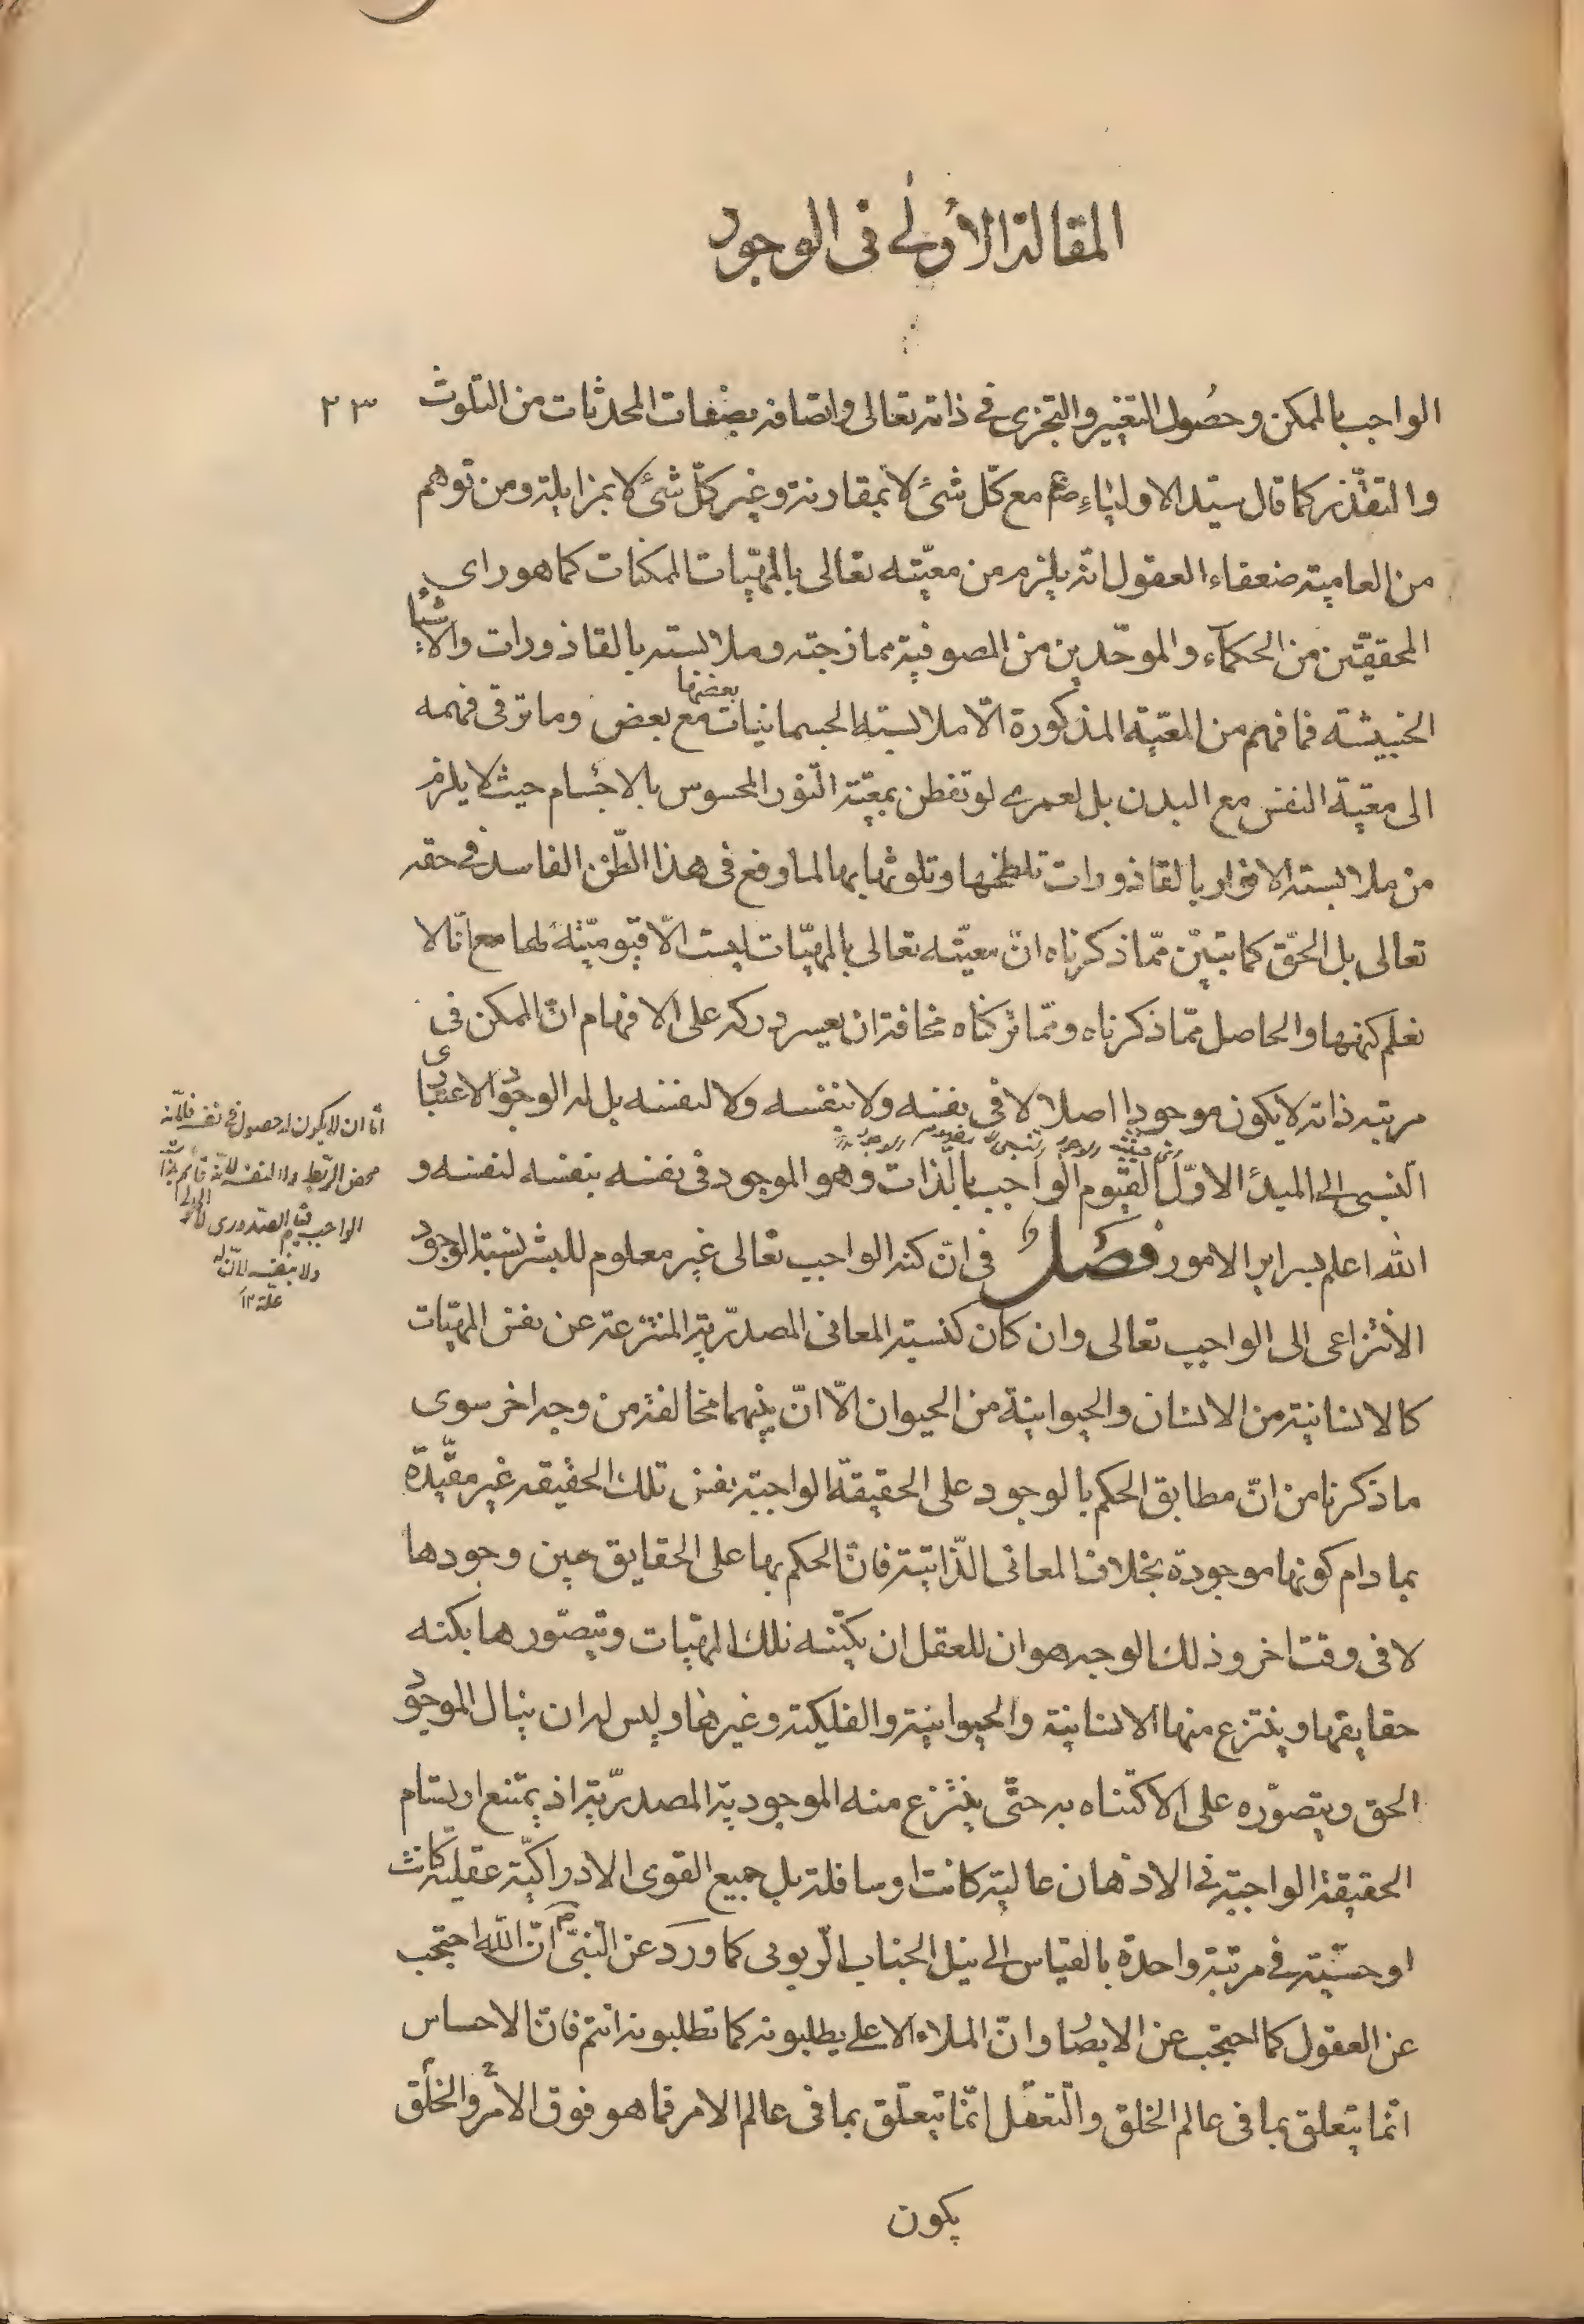 المقالة الأولى في الوجود
٢٣
الواجب بالممكن وحصول التغير والتجزى في ذاته تعالى واتصافه بصفات المحدثات من التلوث
والتقذر كما قال سيد الاولياء ع مع كل شئ لا بمقارنة وغير كل شئ لا بمزايلة ومن توهم
من العامية ضعفاء العقول انه يلزم من معيته تعالى بالمهيات الممكنات كما هو راى
المحققين من الحكماء والموحدين من الصوفية ممازجته وملابسته بالقاذورات والأشياء
الخبيثة فما فهم من المعية المذكورة الّا ملابسة الجسمانيات بعضها مع بعض وما ترقى فهمه
الى معية النفس مع البدن بل لعمرى لو تفطن بمعية النور المحسوس بالاجسام حيث لا يلزم
من ملابسة الانوار بالقاذورات تلطخها وتلوثها بها لما وقع فى هذا الظن الفاسد فى حقه
تعالى بل الحق كما تبين مما ذكرناه ان معيته تعالى بالمهيات ليست الّا قيوميته لها مع انا لا
نعلم كنهها والحاصل مما ذكرناه ومما تركناه مخافة ان يعسر دركه على الافهام ان الممكن فى
مرتبة ذاته لا يكون موجودا اصلا لا فى نفسه ولا بنفسه ولا لنفسه بل له الوجود الاعتبارى
النسبى الى المبدأ الاول القيوم الواجب بالذات وهو الموجود فى نفسه بنفسه لنفسه و
الله اعلم بسراير الامور فصل فى ان كنه الواجب تعالى غير معلوم للبشر نسبة الوجود
الانتزاعى الى الواجب تعالى وان كان كنسبة المعانى المصدرية المنتزعة عن نفس المهيات
كالانسانية من الانسان والحيوانية من الحيوان الّا ان بينهما مخالفة من وجه اخر سوى
ما ذكرنا من ان مطابق الحكم بالوجود على الحقيقة الواجبة نفس تلك الحقيقة غير مقيدة
بما دام كونها موجودة بخلاف المعانى الذاتية فان الحكم بها على الحقايق حين وجودها
لا فى وقت اخر وذلك الوجه هو ان للعقل ان يكتنه تلك المهيات ويتصورها بكنه
حقايقها وينتزع منها الانسانية والحيوانية والفلكية وغيرها وليس له ان ينال الموجود
الحق ويتصوره على الاكتناه به حتى ينتزع منه الموجودية المصدرية اذ يمتنع ارتسام
الحقيقة الواجبة فى الاذهان عالية كانت او سافلة بل جميع القوى الادراكية عقلية كانت
او حسية فى مرتبة واحدة بالقياس الى نيل الجناب الربوبى كما ورد عن النبى ص ان الله احتجب
عن العقول كما احتجب عن الابصار وان الملاء الاعلى يطلبونه كما تطلبونه انتم فان الاحساس
انما يتعلق بما فى عالم الخلق والتعقل انما يتعلق بما فى عالم الامر فما هو فوق الأمر والخلق
يكون
اما ان لا يكون له حصول فى نفسه فلانه
محض الربط ولا لنفسه لانه قائم بذات
الواجب قيام الصدورى
ولا بنفسه لان له
علة ١٢